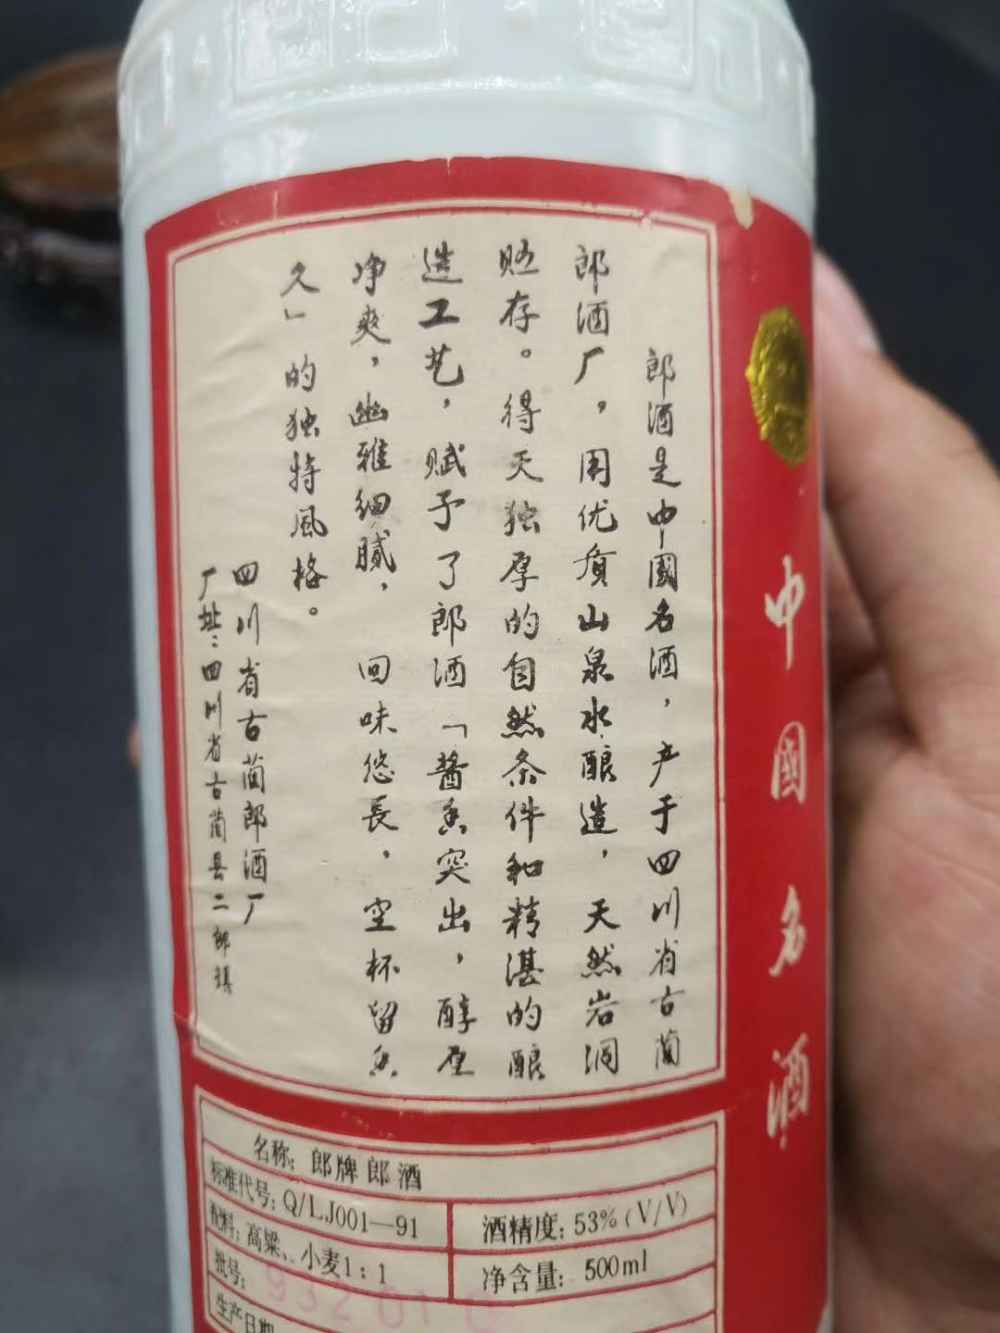 郎酒是中國名酒，产于四川省古藺
郎酒厂，用优质山泉水酿造，天然岩洞
贮存。得天独厚的自然条件和精湛的酿
造工艺，赋予了郎酒「醬香突出，醇厚
净爽，幽雅细腻，回味悠長，空杯留香
久」的独特風格。
四川省古藺郎酒厂
厂址：四川省古藺县二郎镇
中國名酒
名称：郎牌郎酒
标准代号：Q/LJ001—91
酒精度：53%（V/V）
配料：高粱、小麦1：1
净含量：500ml
批号：
生产日期